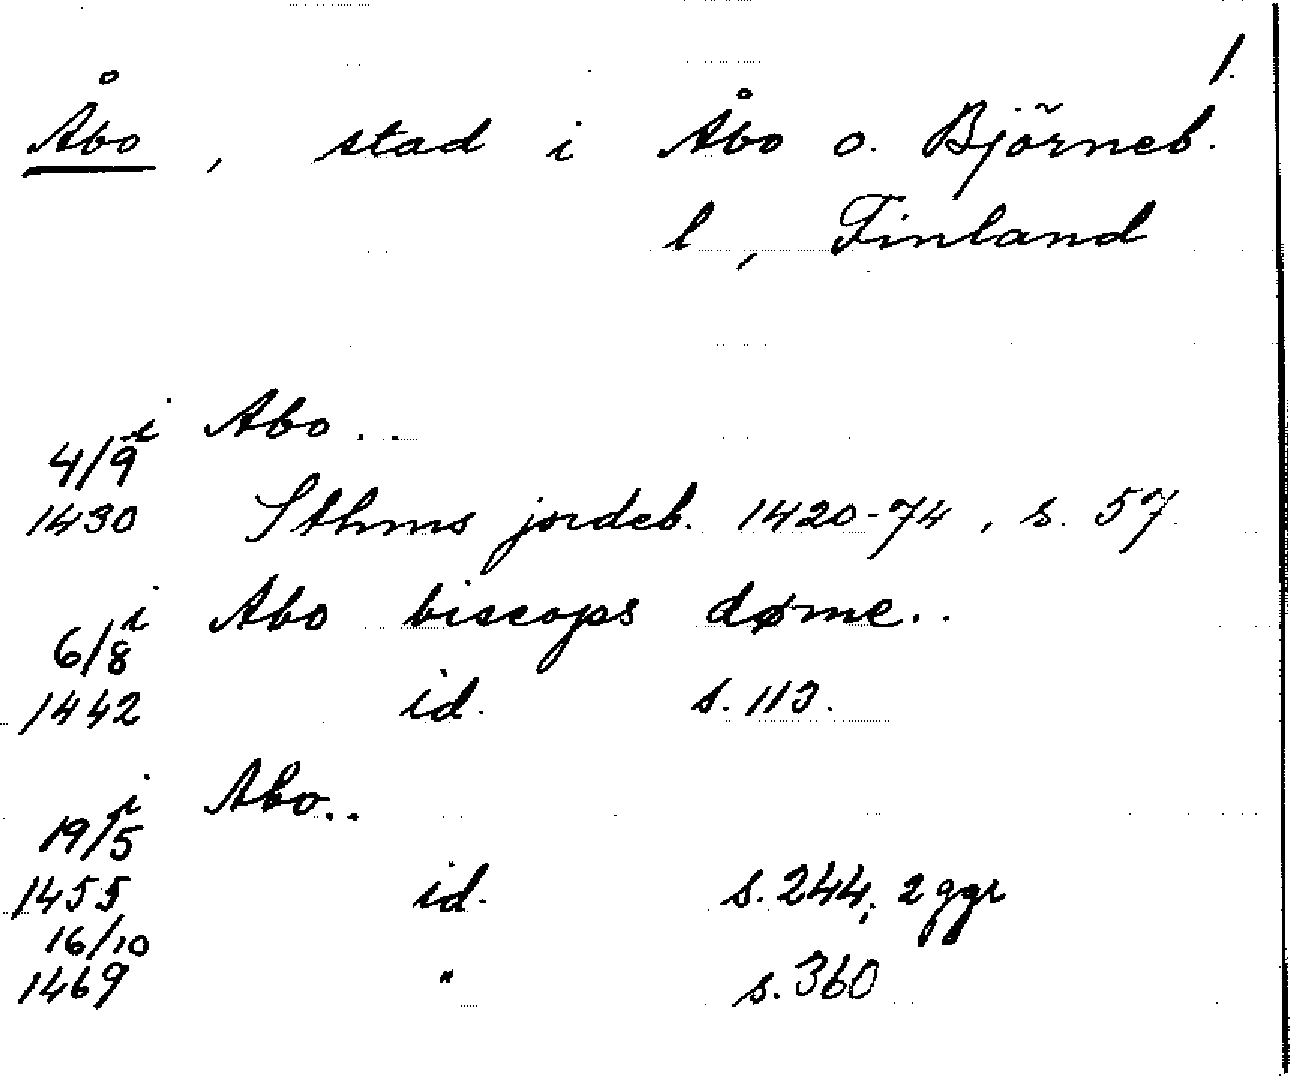 1.
Åbo, stad i Åbo o. Björneb.
l, Finland
i Abo..
4/9
1430 Sthms jordeb. 1420-74, s. 57
i Abo biscops døme..
6/8
1442 id. s. 113.
i Abo..
19/5
1455 id. s. 244, 2 ggr
16/10
1469 " s. 360